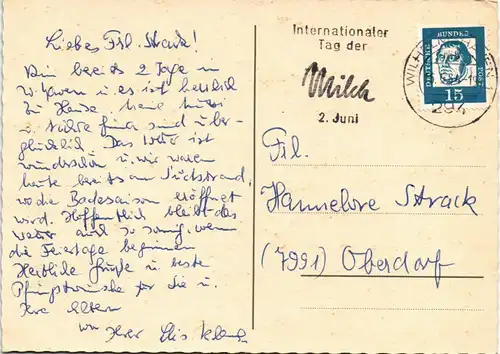 Liebes Frl. Strack!
Bin bereits 2 Tage in
W'haven u. es ist herrlich
zu Hause. Meine Mutti
u. sind über-
glücklich. Das Wetter ist
wunderschön u. wir waren
heute bereits am Südstrand,
wo die Badesaison eröffnet
wird. Hoffentlich bleibt das
Wetter auch so sonnig, wenn
die Feiertage beginnen
Herzliche Grüße u. beste
Pfingstwünsche für Sie u.
Ihre Eltern
von Ihrer
Internationaler
Tag der
Milch
2. Juni
DEUTSCHE BUNDESPOST
15
WILHELMSHAVEN
294
Frl.
Hannelore Strack
(7991) Oberdorf